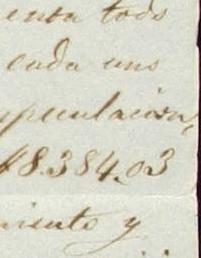 enta todo
cada uno
speculacion,
$8.384.03
miento y